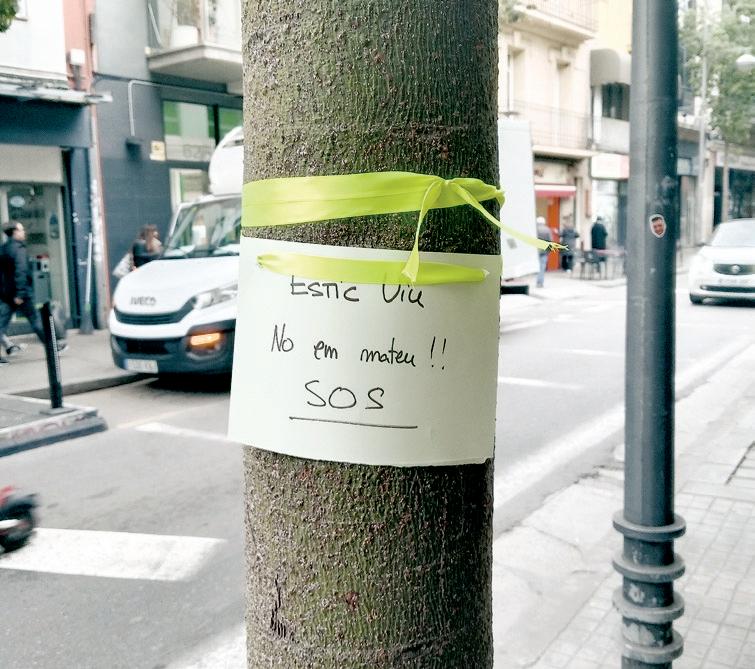 Estic Viu
No em mateu !!
SOS
IVECO